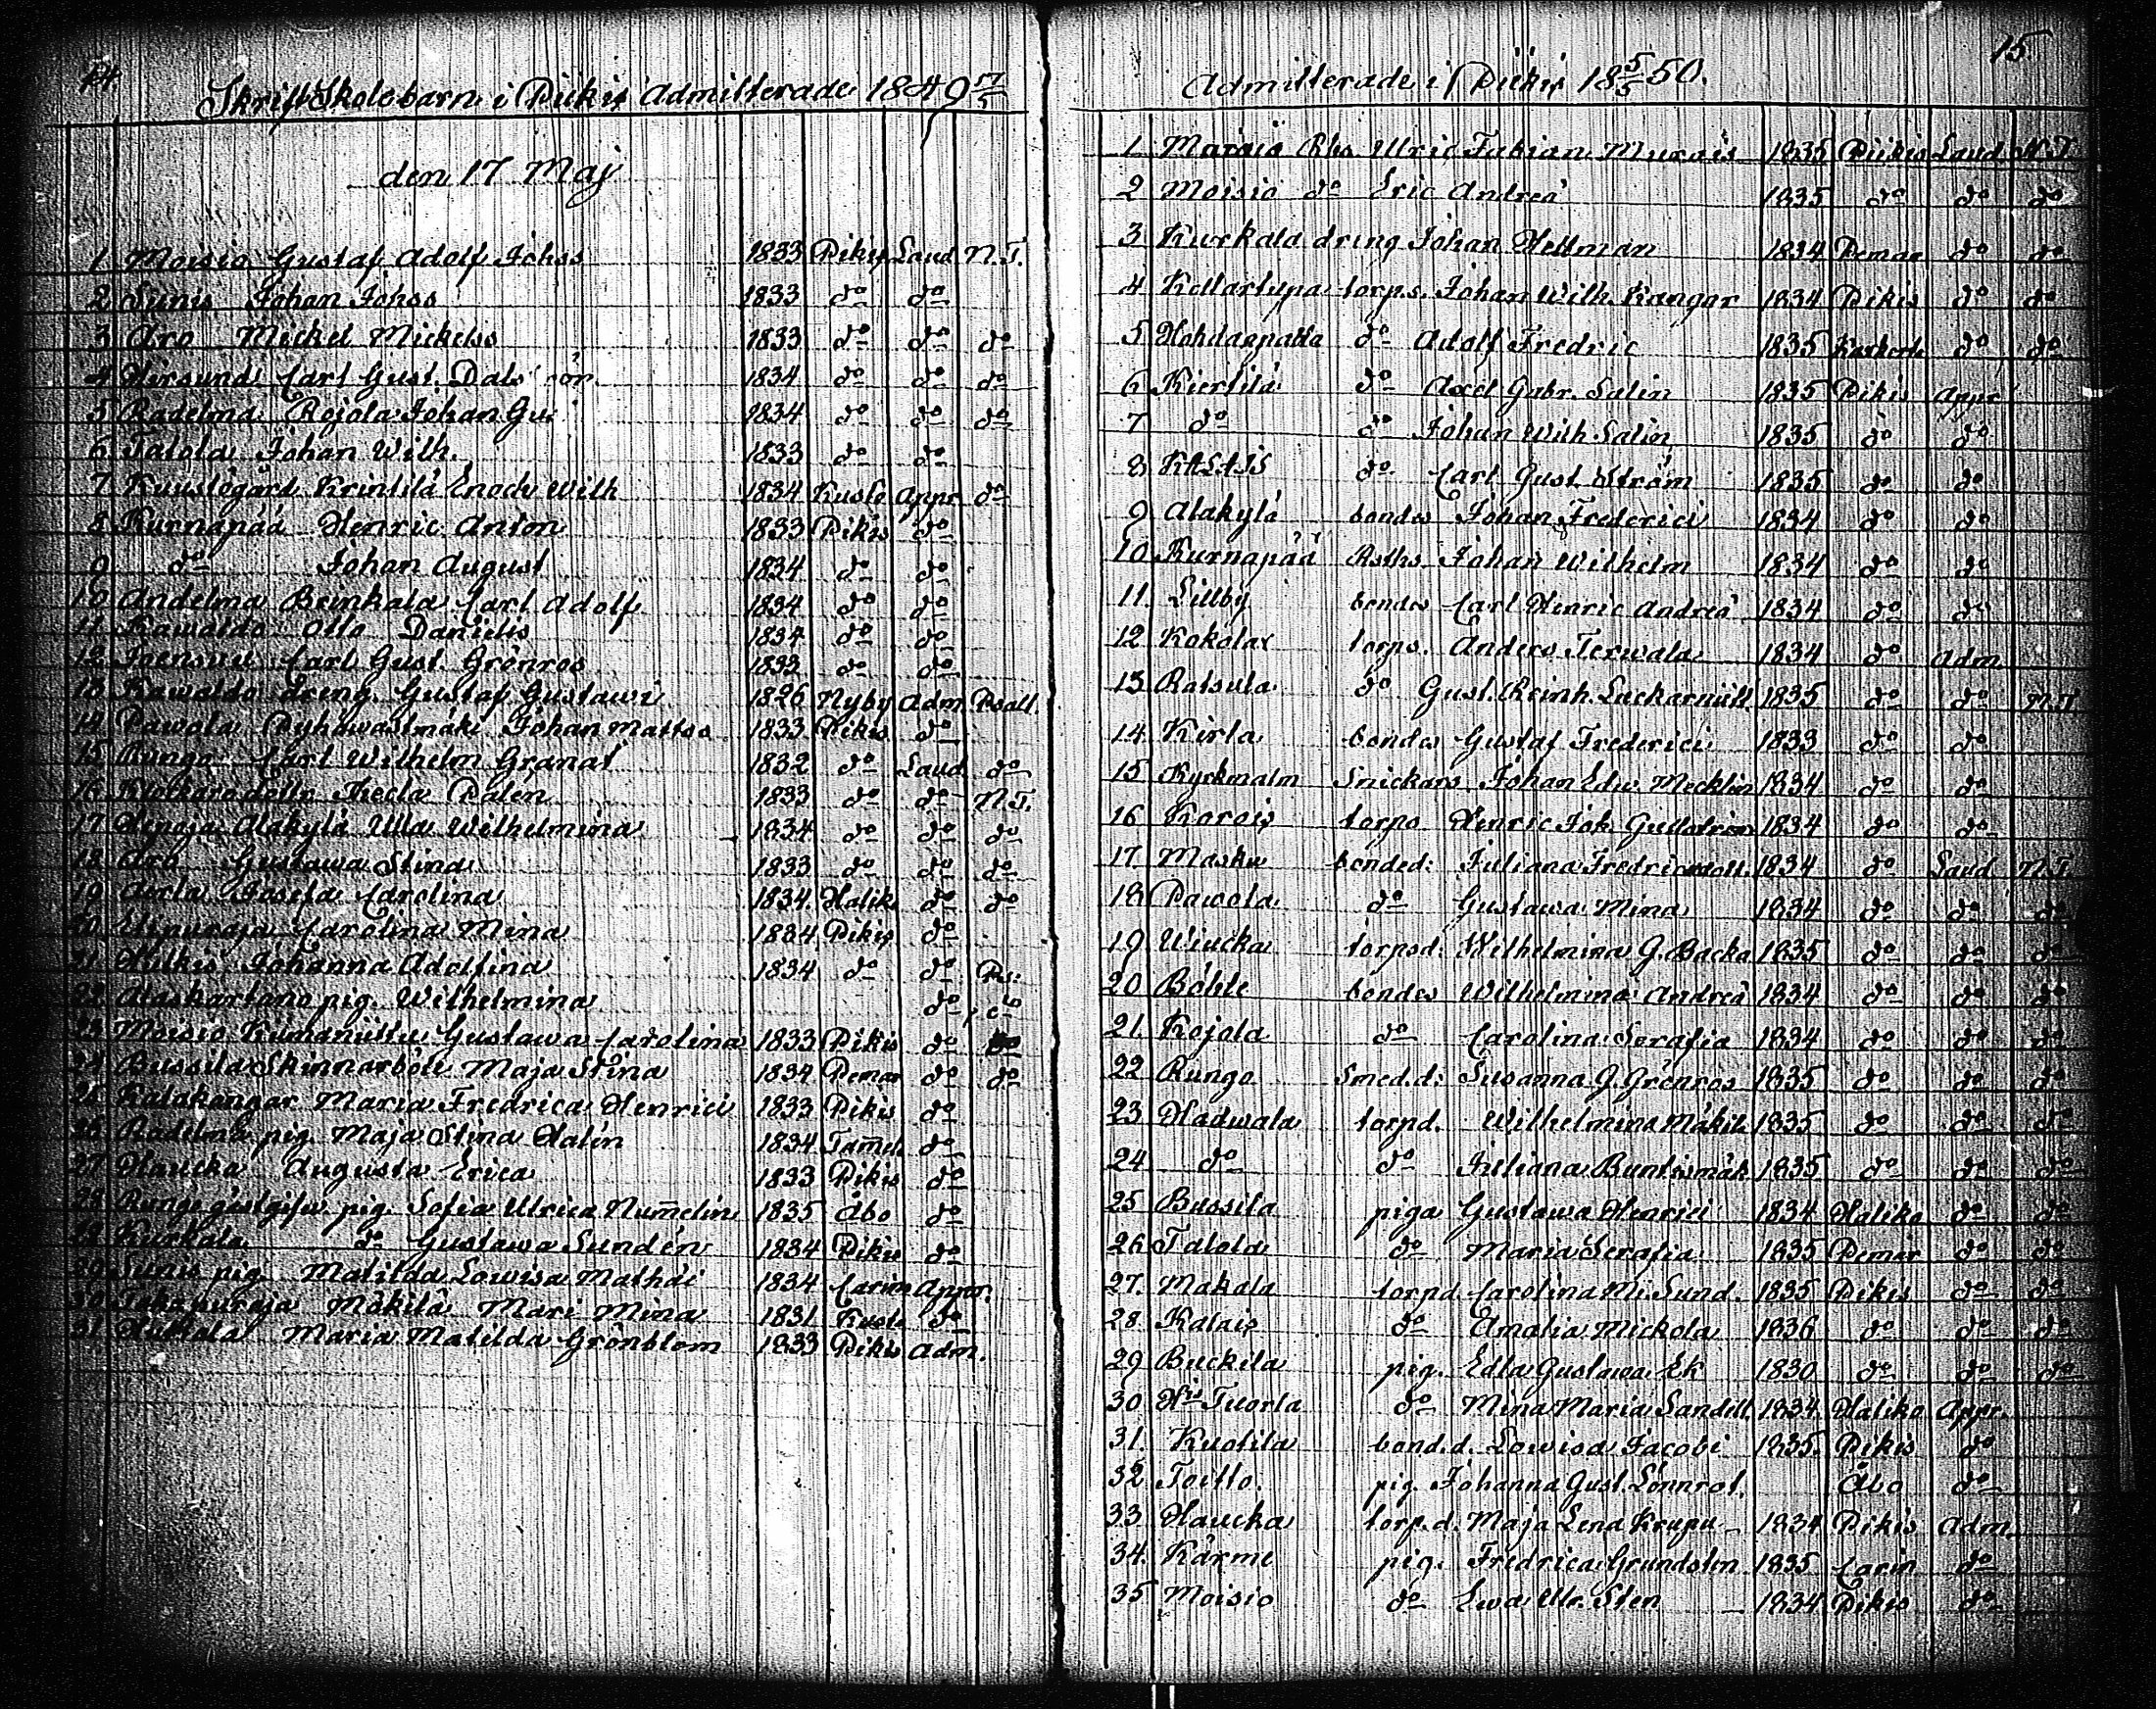 14.
Skrift Skolebarn i Pikis Admitterade 1849 17/5
den 17 Maj
1 Moisio Gustaf Adolf Johss 1833 Pikis Laud N.T.
2 Sunis Johan Johss 1833 do do
3 Aro Mickel Mickelss 1833 do do do
4 Hirsund Carl Gust. Dals 1834 do do do
5 Radelma Rojola Johan Gu 1834 do do do
6 Talola Johan Wilh. 1833 do do
7 Kuustögård Krintilä Enoch Wilh 1834 Kusto Appr do
8 Kurnapää Henric Anton 1833 Pikis do
9 do Johan August 1834 do do
10 Andelma Brinkala Carl Adolf 1834 do do
11 Kawaldo Otto Danielis 1834 do do
12 Joensuu Carl Gust. Grönros 1833 do do
13 Kawaldo dreng. Gustaf Gustawi 1826 Nyby Adm Psalt.
14 Pawola Pyhäwastmäki Johan Mattss 1833 Pikis do
15 Runga Carl Wilhelm Granat 1832 do Laud do
16 Klockaredottr Thecla Palén 1833 do do N.T.
17 Henaja Alakylä Ulla Wilhelmina 1834 do do do
18 Aro Gustawa Stina 1833 do do do
19 Aerla Josefa Carolina 1834 Halik do do
20 Ylipuraja Carolina Mina 1834 Pikis do
21 Hulkis Johanna Adolfina 1834 do do Ps:
22 Alaskartano pig. Wilhelmina do
23 Moisio Kumanüttu Gustawa Carolina 1833 Pikis do do
24 Bussila Skinnarböle Maja Stina 1834 Pemar do do
25 Katakangar Maria Fredrica Henrici 1833 Pikis do
26 Radelma pig. Maja Stina Halin 1834 Tamel do
27 Haucka Augusta Erica 1833 Pikis do
28 Runge gästgifv. pig. Sofia Ulrica Num̅elin 1835 Åbo do
28 Kurkala do Gustawa Sundén 1834 Pikis do
29 Sunis pig. Matilda Lowisa Mathäi 1834 Carin Appr.
30 Takapuraja Mäkilä Mari Mina 1831 Kusto do
31 Huttala Maria Matilda Grönblom 1833 Pikis Adm.
15
Admitterade i Pikis 18 5/5 50.
1 Marais Rhs Ulric Fabian Murais 1835 Pikis Laud N.T.
2 Moisio do Eric Andreä 1835 do do do
3 Kurkala dreng Johan Hellman 1834 Pemar do do
4 Kellartupa torps. Johan Wilh. Kangar 1834 Pikis do do
5 Hohdanpatta do Adolf Fredric 1835 do do
6 Kierlilä do Axel Gabr. Salin 1835 Pikis Appr
7 do do Johan Wilh. Salin 1835 do do
8 KALAIS do Carl Gust. Ström 1835 do do
9 Alakylä bondes Johan Frederici 1834 do do
10 Kurnapää Rsths Johan Wilhelm 1834 do do
11 Lillby bondes Carl Henric Andreä 1834 do do
12 Kokola torps. Anders Terwala 1834 do Adm
13 Ratsula do Gust. Reinh. Luckarnütt 1835 do do N.T
14 Kirla bondes Gustaf Frederici 1833 do do
15 Kyrkmalm Snickars Johan Edw. Mecklin 1834 do do
16 Korois torps Henric Joh. Gustström 1834 do do
17 Masku bonded: Juliana Fredric 1834 do Laud N.T.
18 Pawola do Gustawa Mina 1834 do do do
19 Wiucka torpsd. Wilhelmina G. Backa 1835 do do do
20 Böhle bondes Wilhelmina Andreä 1834 do do do
21 Rojola do Carolina Serafia 1834 do do do
22 Runga Smed.d: Susanna G. Grönros 1835 do do do
23 Hadwala torpd. Wilhelmina Mäkil 1835 do do do
24 do do Juliana Buntismäk 1835 do do do
25 Bussila piga Gustawa Henrici 1834 Haliko do do
26 Talola do Maria Serafia 1835 Pemar do do
27. Makala torpd. Carolina Mi. Sund. 1835 Pikis do do
28. Kalais do Amalia Mickola 1836 do do do
29 Buckila pig. Edla Gustawa Ek 1830 do do do
30 Tuorla do Mina Maria Sandell 1834 Haliko Appr.
31. Kuotila bond.d. Lowisa Jacobi 1835. Pikis do
32 Toitto. pig. Johanna Gust. Lönnrot. Åbo do
33 Haucka torp.d. Maja Lena Krupu 1834 Pikis Adm.
34. Kärme pig. Fredrica Grundstn 1835 Carin do
35 Moisio do Ewa Ulr. Sten 1834 Pikis do